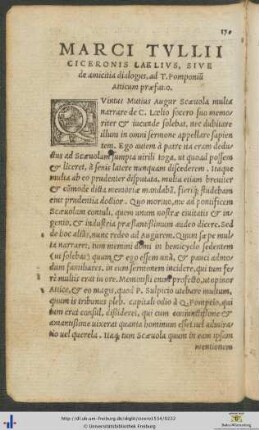 MARCI TVLLII
CICERONIS LAELIVS, SIVE
de amicitia dialogus, ad T. Pomponiũ
Atticum præfatio.
QVintus Mutius Augur Scæuola multa
narrare de C. Lælio socero suo memo
riter & iucunde solebat, nec dubitare
illum in omni sermone appellare sapien
tem. Ego autem à patre ita eram dedu
ctus ad Scæuolam sumpta uirili toga, ut quoad possem
& liceret, à senis latere nunquam discederem. Itaque
multa ab eo prudenter disputata, multa etiam breuiter
& cõmode dicta memoriæ mandabã, fieriq; studebam
eius prudentia doctior. Quo mortuo, me ad pontificem
Scæuolam contuli, quem unum nostræ ciuitatis & in-
genio, & iustitia præstantissimum audeo dicere. Sed
de hoc aliàs, nunc redeo ad Augurem. Quum sæpe mul
ta narraret, tum memini domi in hemicyclo sedentem
(ut solebat) quum & ego essem unà, & pauci admo
dum familiares, in eum sermonem incidere, qui tum fe
rè multis erat in ore. Meministi enim profectò, ut opinor
Attice, & eo magis, quod P. Sulpicio utebare multum,
quum is tribunus pleb. capitali odio à Q. Pompeio, qui
tum erat consul, dissideret, qui cum coniunctissime &
amantissime uixerat quanta hominum esset uel admira
tio uel querela. Itaq; tum Scæuola quum in eam ipsam
mentionem
© Universitätsbibliothek Freiburg